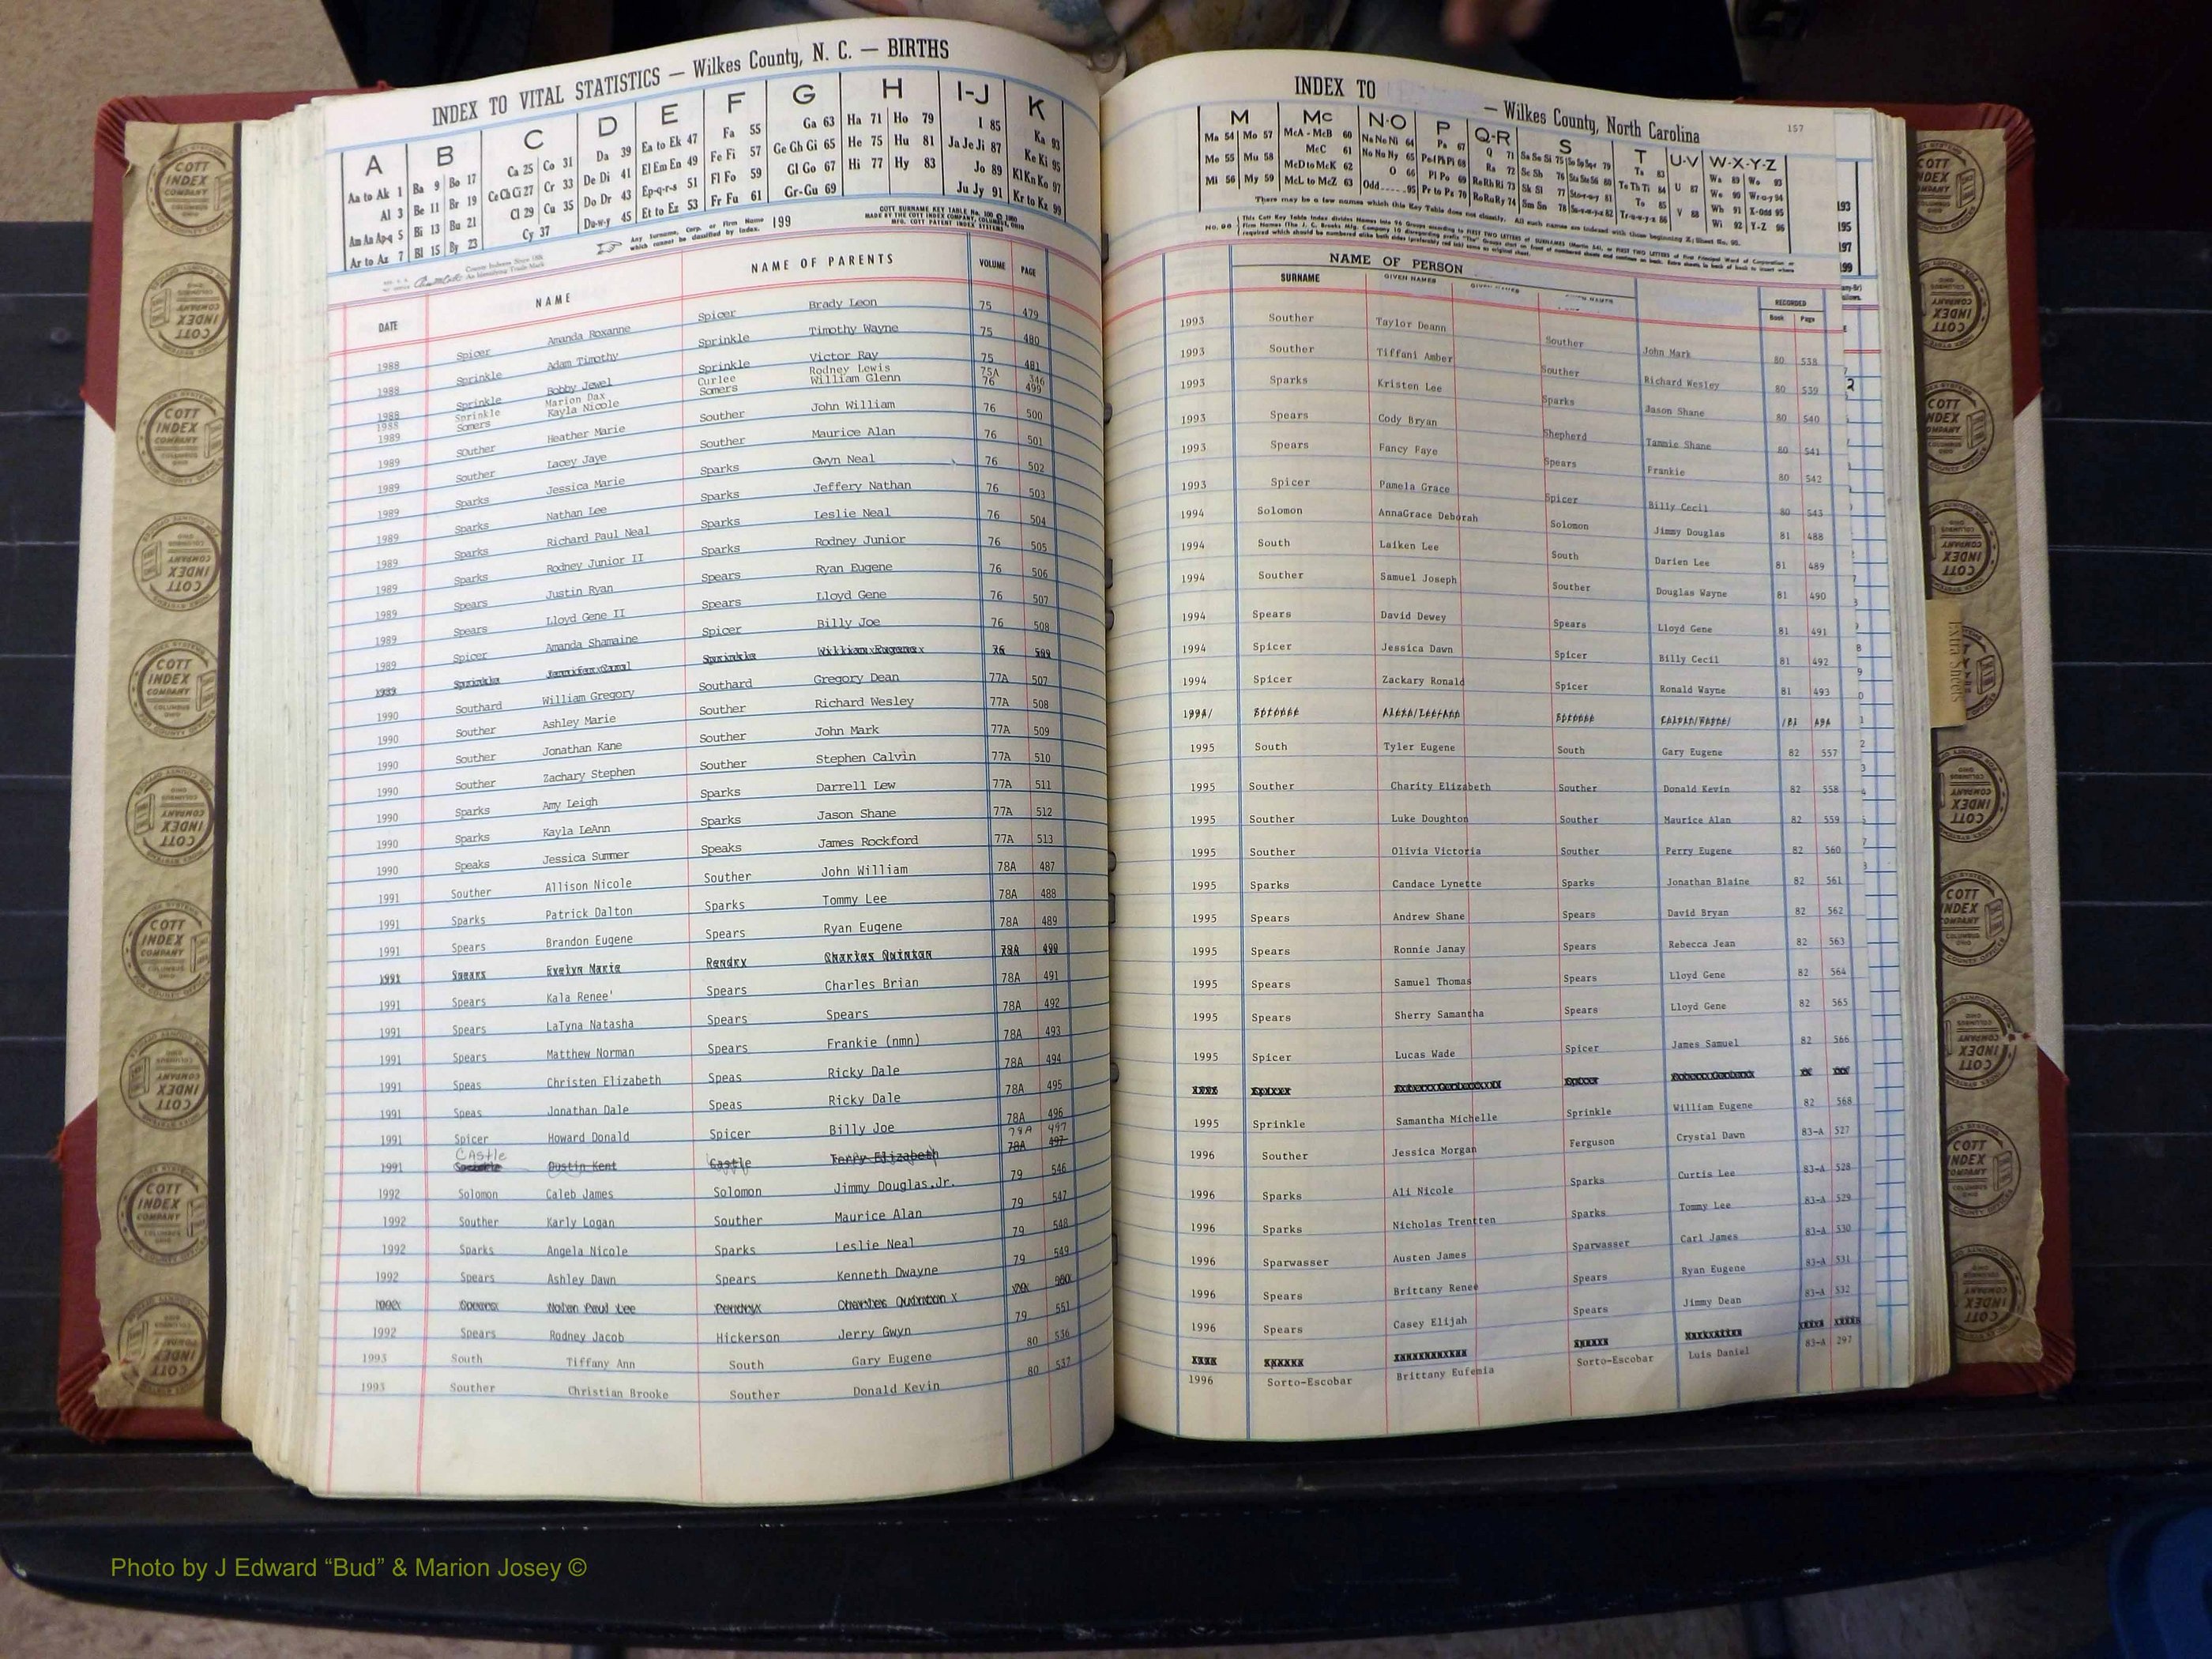 INDEX TO VITAL STATISTICS — Wilkes County, N. C. — BIRTHS
A B C D E F G H I-J K
Aa to Ak 1 Ba 9 Bo 17 Ca 25 Co 31 Da 39 Ea to Ek 47 Fa 55 Ga 63 Ha 71 Ho 79 I 85 Ka 93
Al 3 Be 11 Br 19 Ce Ch Ci 27 Cr 33 De Di 41 El Em En 49 Fe Fi 57 Ge Gh Gi 65 He 75 Hu 81 Ja Je Ji 87 Ke Ki 95
Am An Ap-q 5 Bi 13 Bu 21 Cl 29 Cu 35 Do Dr 43 Ep-q-r-s 51 Fl Fo 59 Gl Go 67 Hi 77 Hy 83 Jo 89 Kl Kn Ko 97
Ar to Az 7 Bl 15 By 23 Cy 37 Du-w-y 45 Et to Ez 53 Fr Fu 61 Gr-Gu 69 Ju Jy 91 Kr to Kz 99
Any Surname, Corp. or Firm Name which cannot be classified by index. 199
COTT SURNAME KEY TABLE No. 100 © 1960
MADE BY THE COTT INDEX COMPANY, COLUMBUS, OHIO
MFG. COTT PATENT INDEX SYSTEMS
DATE NAME NAME OF PARENTS VOLUME PAGE
1988 Spicer Amanda Roxanne Spicer Brady Leon 75 479
1988 Sprinkle Adam Timothy Sprinkle Timothy Wayne 75 480
1988 Sprinkle Bobby Jewel Sprinkle Victor Ray 75 481
1988 Sprinkle Marion Dax Curlee Rodney Lewis 75A 346
1989 Somers Kayla Nicole Somers William Glenn 76 499
1989 Souther Heather Marie Souther John William 76 500
1989 Souther Lacey Jaye Souther Maurice Alan 76 501
1989 Sparks Jessica Marie Sparks Gwyn Neal 76 502
1989 Sparks Nathan Lee Sparks Jeffery Nathan 76 503
1989 Sparks Richard Paul Neal Sparks Leslie Neal 76 504
1989 Sparks Rodney Junior II Sparks Rodney Junior 76 505
1989 Spears Justin Ryan Spears Ryan Eugene 76 506
1989 Spears Lloyd Gene II Spears Lloyd Gene 76 507
1989 Spicer Amanda Shamaine Spicer Billy Joe 76 508
1989 Sprinkle Jennifer Carol Sprinkle William Eugene 76 509
1990 Southard William Gregory Southard Gregory Dean 77A 507
1990 Souther Ashley Marie Souther Richard Wesley 77A 508
1990 Souther Jonathan Kane Souther John Mark 77A 509
1990 Souther Zachary Stephen Souther Stephen Calvin 77A 510
1990 Sparks Amy Leigh Sparks Darrell Lew 77A 511
1990 Sparks Kayla LeAnn Sparks Jason Shane 77A 512
1990 Speaks Jessica Summer Speaks James Rockford 77A 513
1991 Souther Allison Nicole Souther John William 78A 487
1991 Sparks Patrick Dalton Sparks Tommy Lee 78A 488
1991 Spears Brandon Eugene Spears Ryan Eugene 78A 489
1991 Spears Evelyn Marie Charles Quinton 78A 490
1991 Spears Kala Renee' Spears Charles Brian 78A 491
1991 Spears LaTyna Natasha Spears Spears 78A 492
1991 Spears Matthew Norman Spears Frankie (nmn) 78A 493
1991 Speas Christen Elizabeth Speas Ricky Dale 78A 494
1991 Speas Jonathan Dale Speas Ricky Dale 78A 495
1991 Spicer Howard Donald Spicer Billy Joe 78A 496
CAStle 78A 497
1991 Dustin Kent Castle Terry Elizabeth 78A 497
1992 Solomon Caleb James Solomon Jimmy Douglas,Jr. 79 546
1992 Souther Karly Logan Souther Maurice Alan 79 547
1992 Sparks Angela Nicole Sparks Leslie Neal 79 548
1992 Spears Ashley Dawn Spears Kenneth Dwayne 79 549
1992 Spears Nolen Paul Lee Pendryx Charles Quinton
1992 Spears Rodney Jacob Hickerson Jerry Gwyn 79 551
1993 South Tiffany Ann South Gary Eugene 80 536
1993 Souther Christian Brooke Souther Donald Kevin 80 537
INDEX TO — Wilkes County, North Carolina 157
M Mc N-O P Q-R S T U-V W-X-Y-Z
Ma 54 Mo 57 McA - McB 60 Na Ne Ni 64 Pa 67 Q 71 Ta 83 Wa 89 Wo 93
Me 55 Mu 58 McC 61 No Nu Ny 65 Pe-f Ph Pi 68 Ra 72 Sc Sh 76 Te Th Ti 84 U 87 We 90 Wr-o-y 94
Mi 56 My 59 McD to McK 62 O 66 Pl Po 69 Re Rh Ri 73 Sk Sl 77 To 85 V 88 Wh 91 X-Odd 95
McL to McZ 63 Odd 95 Pr to Ps 70 Ro Ru Ry 74 Sm Sn 78 Tr-u-w-y-z 86 Wi 92 Y-Z 96
NAME OF PERSON
SURNAME GIVEN NAMES GIVEN NAMES GIVEN NAMES RECORDED
Book Page
1993 Souther Taylor Deann Souther John Mark 80 538
1993 Souther Tiffani Amber Souther Richard Wesley 80 539
1993 Sparks Kristen Lee Sparks Jason Shane 80 540
1993 Spears Cody Bryan Shepherd Tammie Shane 80 541
1993 Spears Fancy Faye Spears Frankie 80 542
1993 Spicer Pamela Grace Spicer Billy Cecil 80 543
1994 Solomon AnnaGrace Deborah Solomon Jimmy Douglas 81 488
1994 South Laiken Lee South Darien Lee 81 489
1994 Souther Samuel Joseph Souther Douglas Wayne 81 490
1994 Spears David Dewey Spears Lloyd Gene 81 491
1994 Spicer Jessica Dawn Spicer Billy Cecil 81 492
1994 Spicer Zackary Ronald Spicer Ronald Wayne 81 493
1994 81 494
1995 South Tyler Eugene South Gary Eugene 82 557
1995 Souther Charity Elizabeth Souther Donald Kevin 82 558
1995 Souther Luke Doughton Souther Maurice Alan 82 559
1995 Souther Olivia Victoria Souther Perry Eugene 82 560
1995 Sparks Candace Lynette Sparks Jonathan Blaine 82 561
1995 Spears Andrew Shane Spears David Bryan 82 562
1995 Spears Ronnie Janay Spears Rebecca Jean 82 563
1995 Spears Samuel Thomas Spears Lloyd Gene 82 564
1995 Spears Sherry Samantha Spears Lloyd Gene 82 565
1995 Spicer Lucas Wade Spicer James Samuel 82 566
1995 Sprinkle Samantha Michelle Sprinkle William Eugene 82 568
1996 Souther Jessica Morgan Ferguson Crystal Dawn 83-A 527
1996 Sparks Ali Nicole Sparks Curtis Lee 83-A 528
1996 Sparks Nicholas Trentten Sparks Tommy Lee 83-A 529
1996 Sparwasser Austen James Sparwasser Carl James 83-A 530
1996 Spears Brittany Renee Spears Ryan Eugene 83-A 531
1996 Spears Casey Elijah Spears Jimmy Dean 83-A 532
1996 Sorto-Escobar Brittany Eufemia Sorto-Escobar Luis Daniel 83-A 297
193
195
197
199
Extra Sheets
COTT INDEX COMPANY COLUMBUS OHIO
Photo by J Edward “Bud” & Marion Josey ©